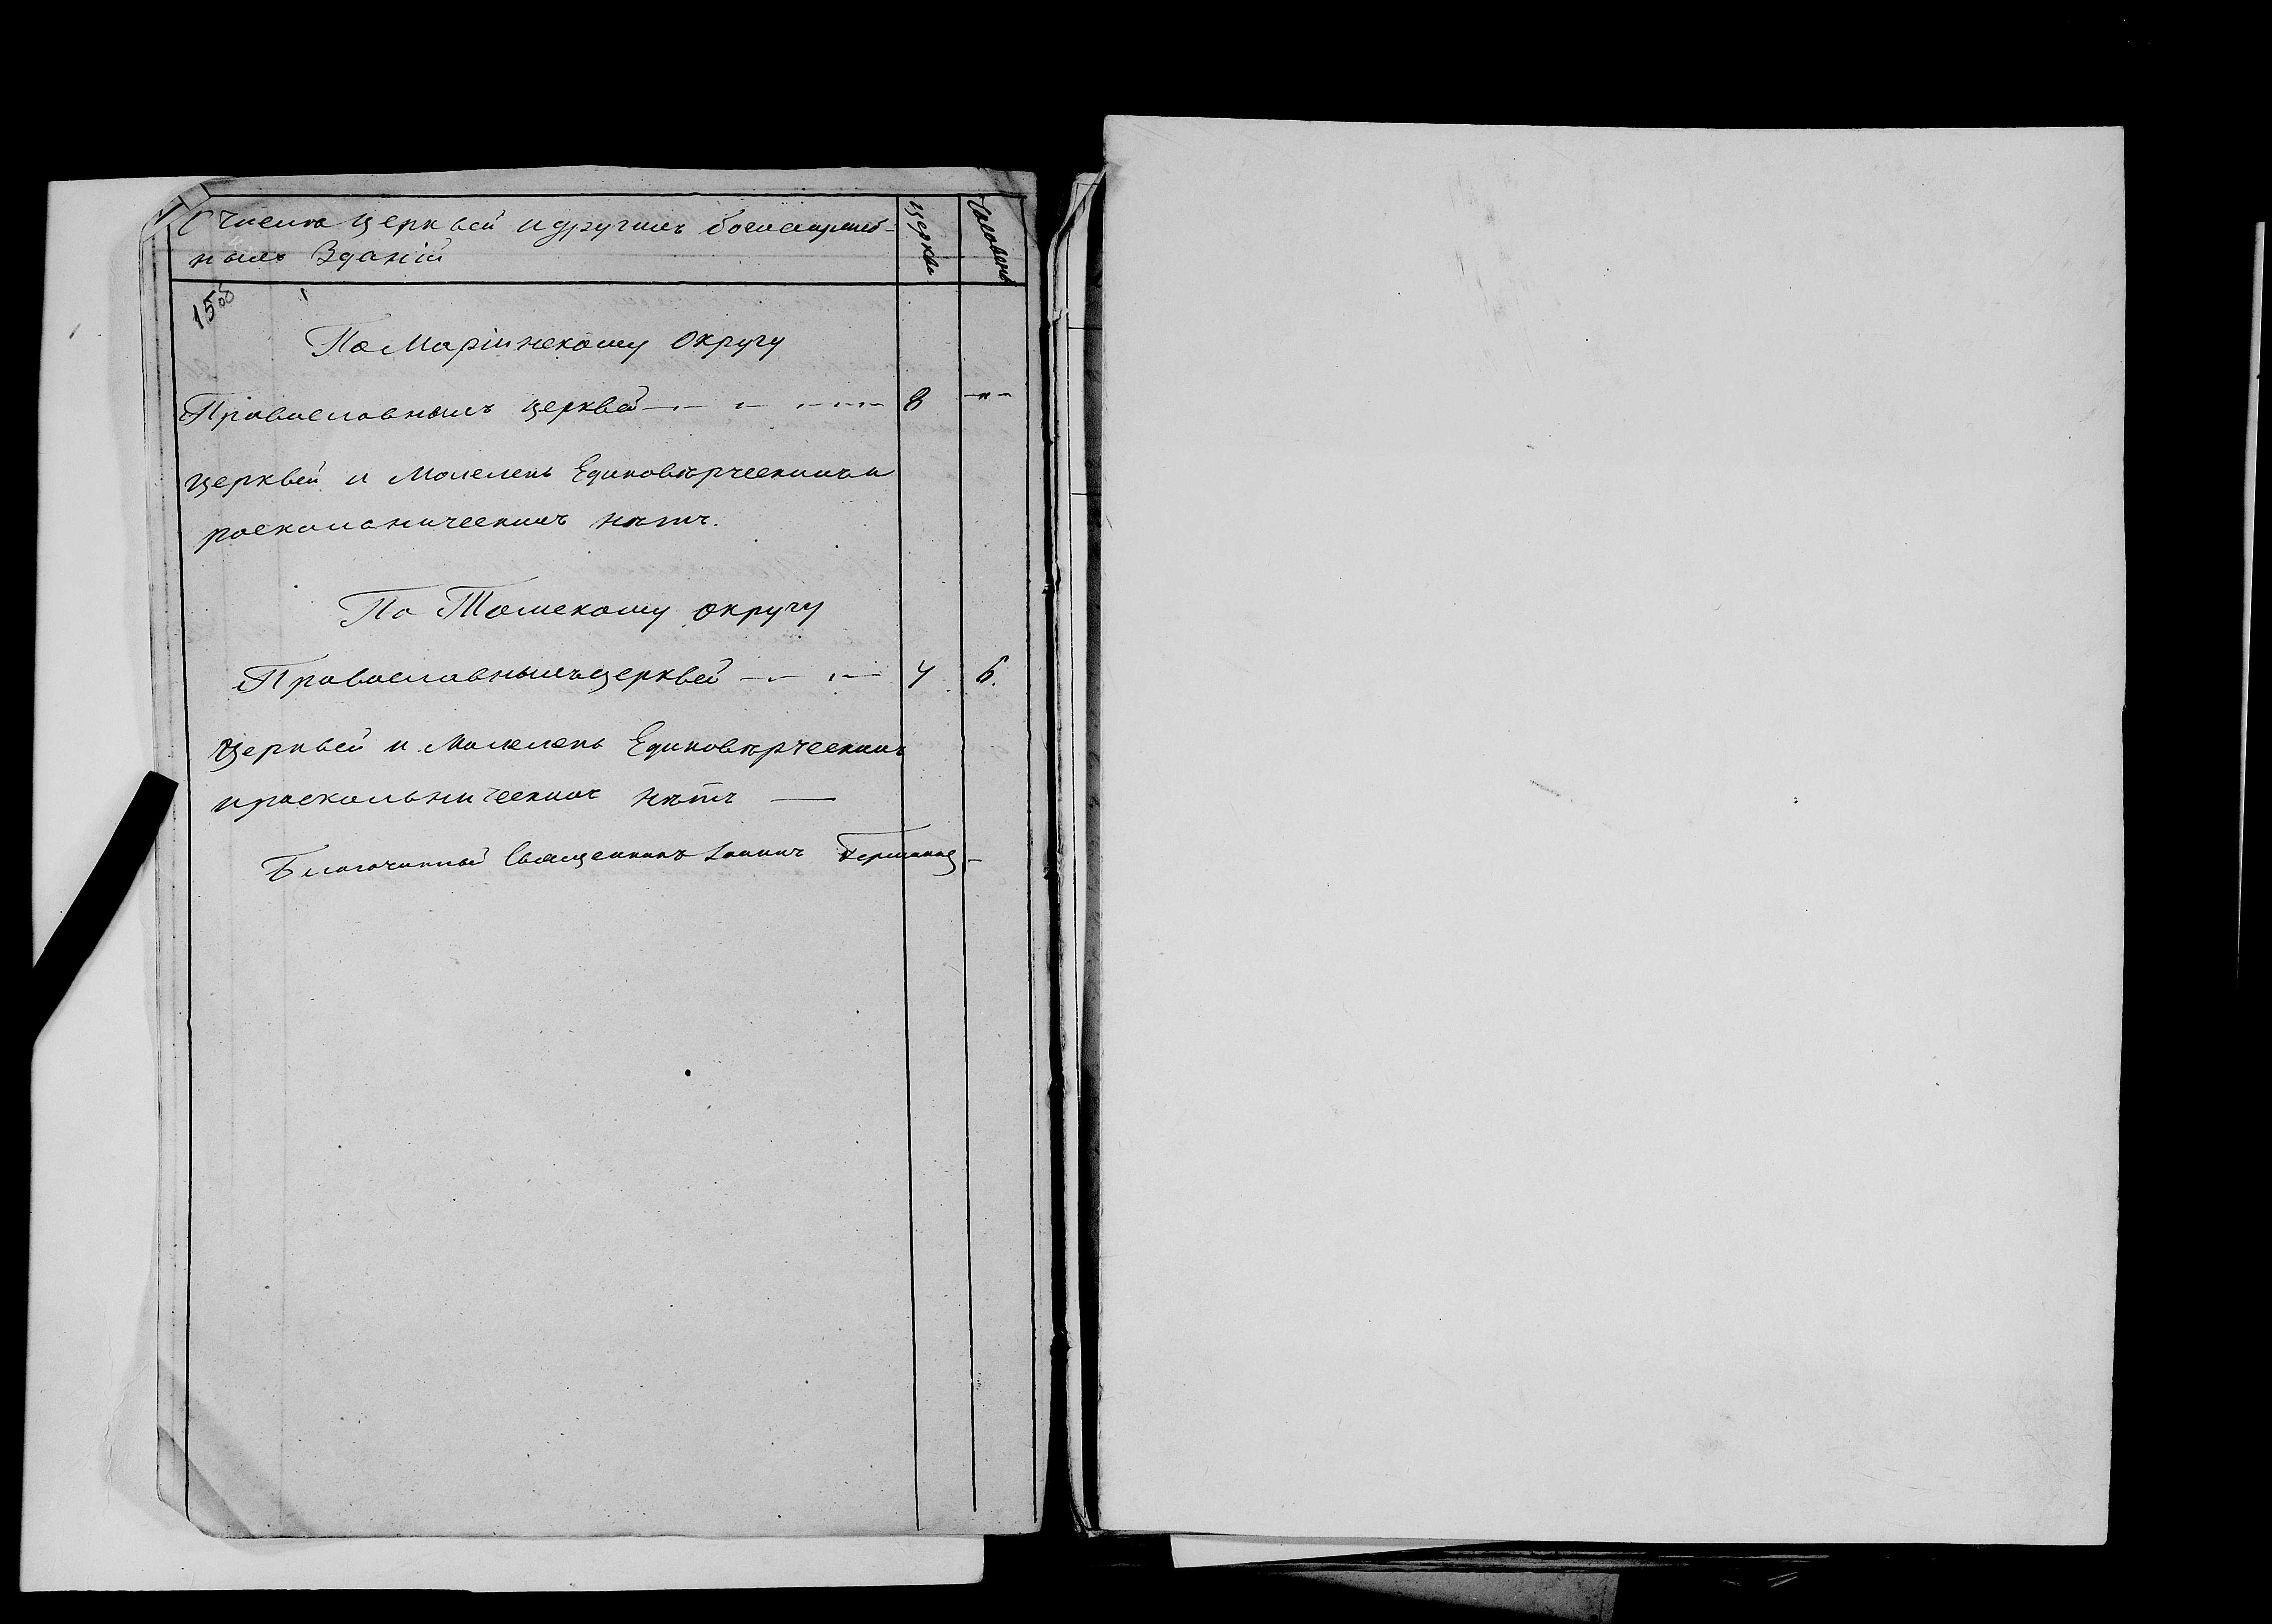 О числѣ церквей и другихъ богослужеб-
ныхъ Зданій
Церкви
Часовень
150 об
По Маріинскому Округу
Православныхъ церквей 8 „
Церквей и Молелень Единовѣрческихъ и
роскольническихъ нѣтъ.
По Томскому округу
Православныхъ церквей 4 6.
Церквей и Молелень Единовѣрческихъ
и роскольническихъ нѣтъ
Благочинный Священникъ Іоаннъ